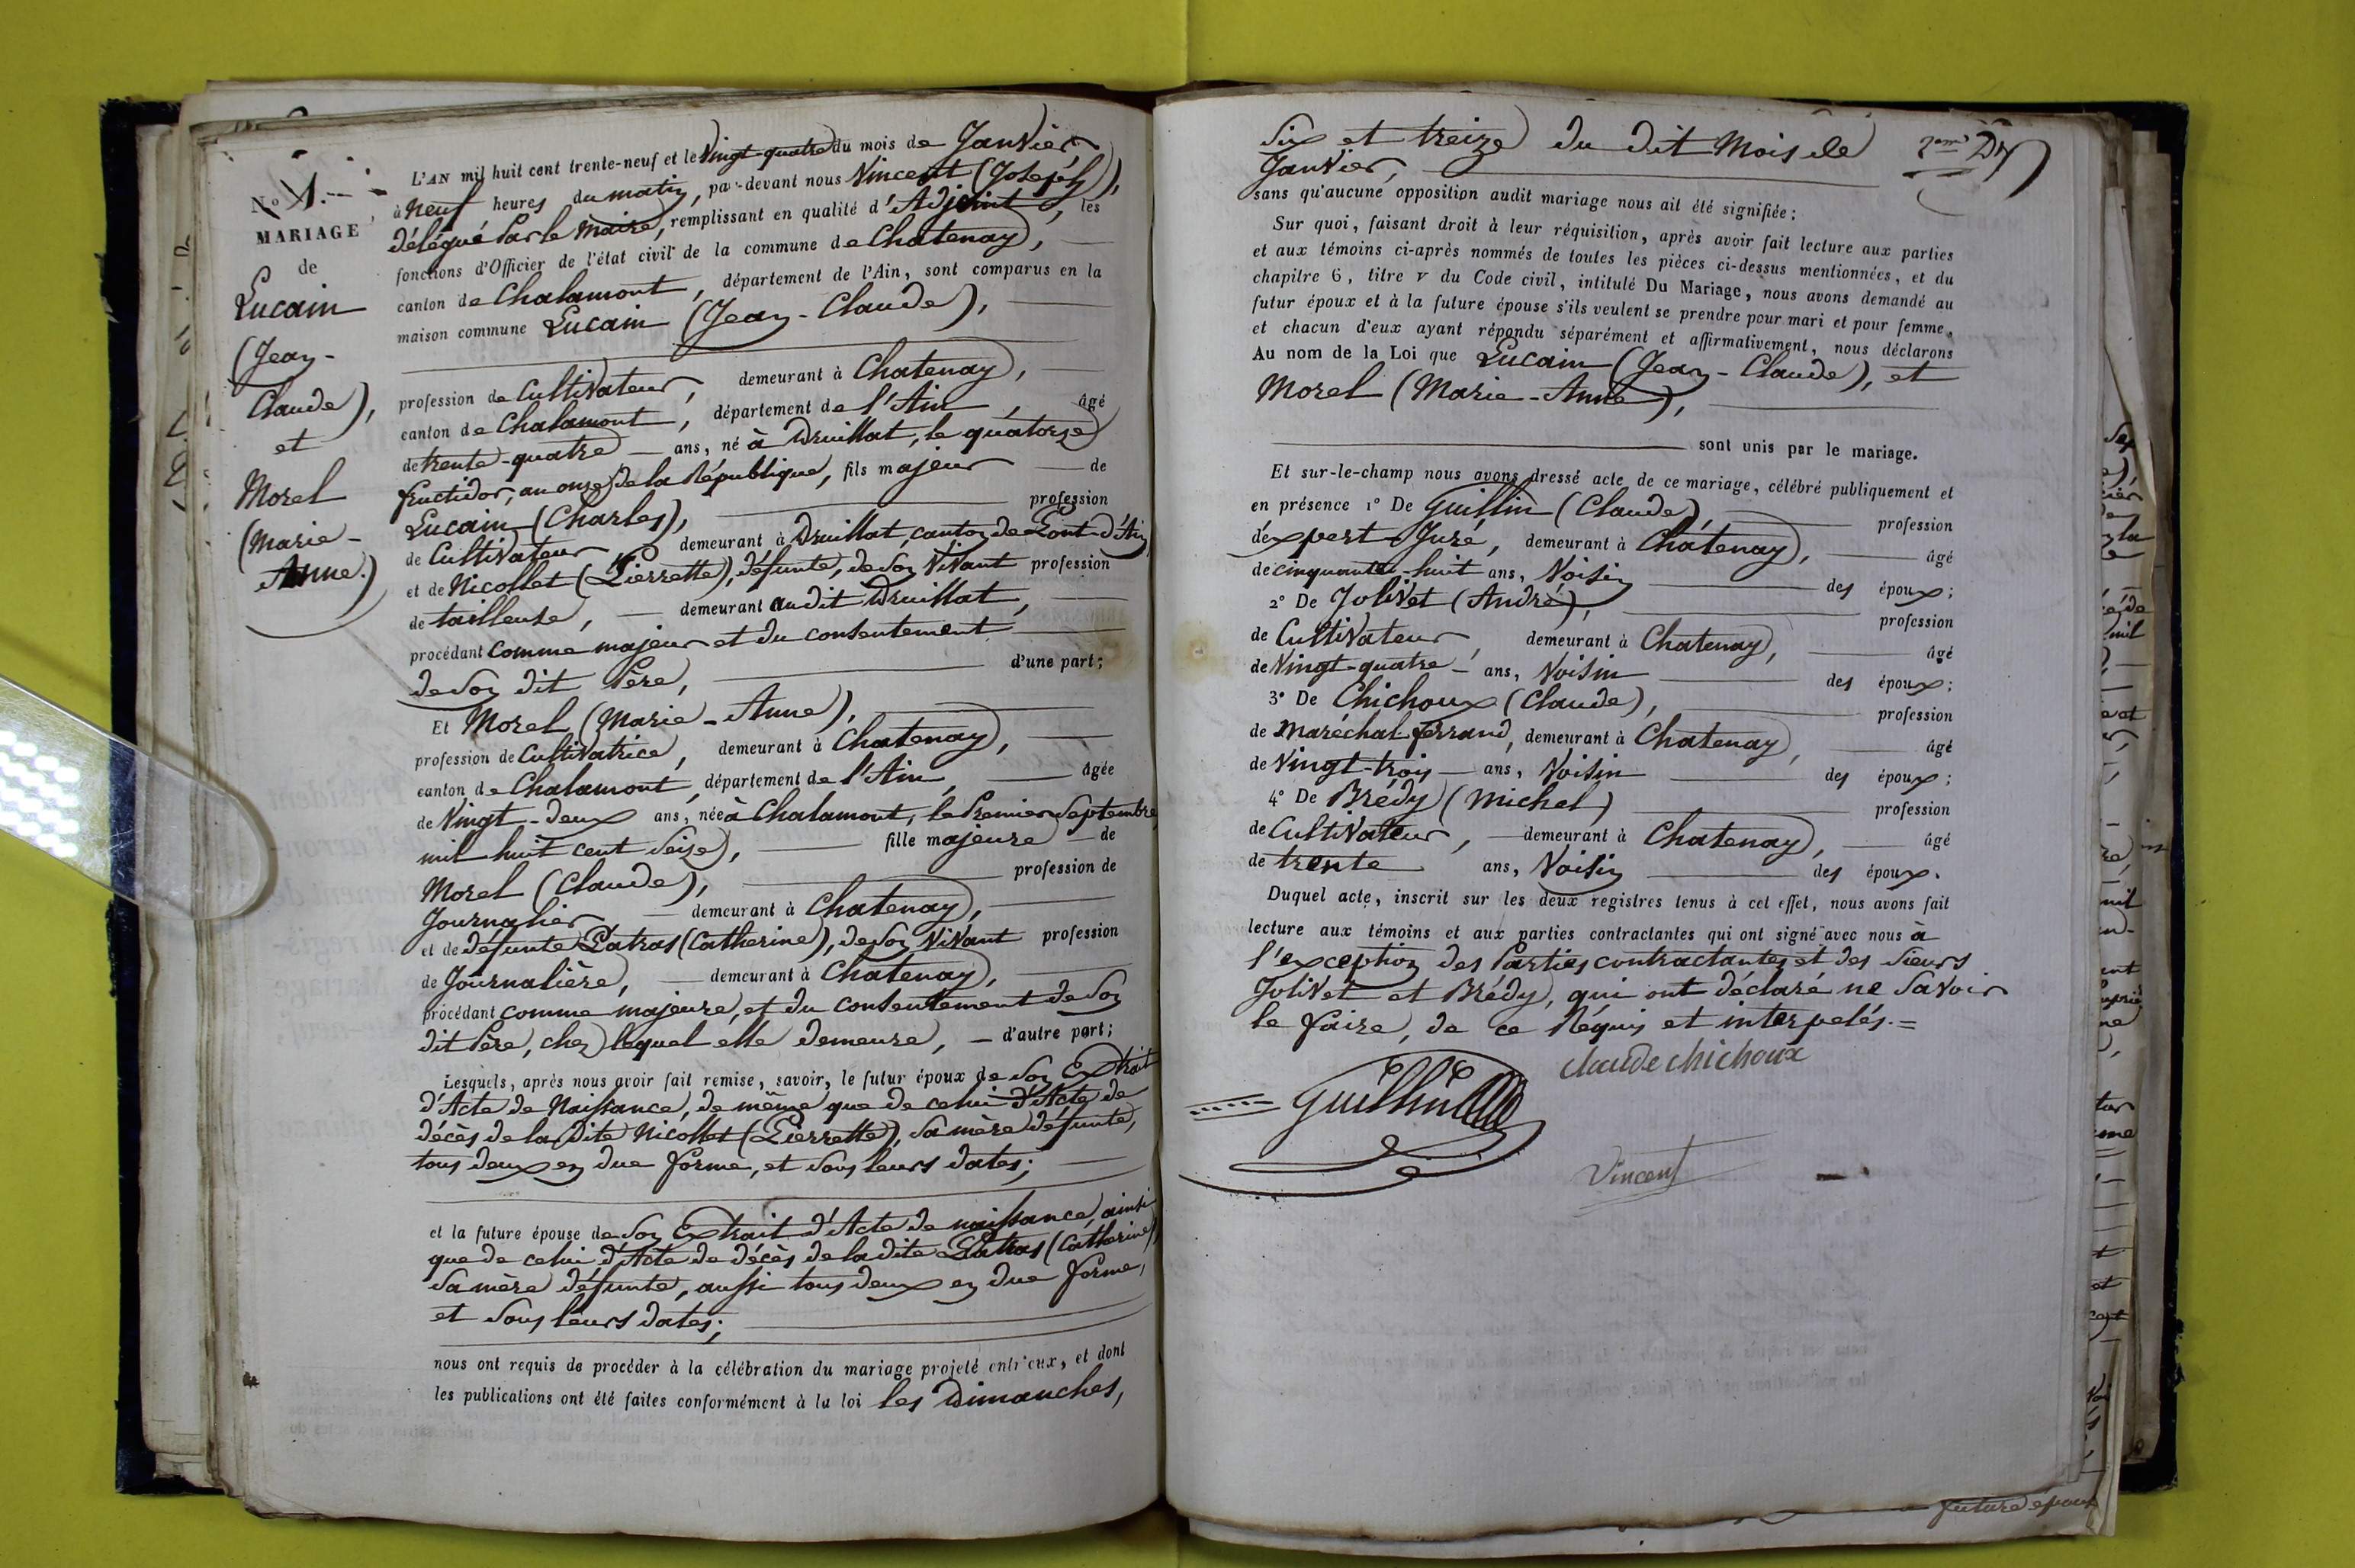 N.º 1.
MARIAGE
de
Lucain
(Jean-
Claude),
et
Morel
(Marie-
Anne.)
L'AN mil huit cent trente-neuf et le Vingt-quatre du mois de Janvier
à neuf heures du matin, par-devant nous Vincent (Joseph),
délégué par le Maire, remplissant en qualité d'Adjoint, les
fonctions d'Officier de l'état civil de la commune de Chatenay,
canton de Chalamont, département de l'Ain, sont comparus en la
maison commune Lucain (Jean-Claude),
profession de Cultivateur, demeurant à Chatenay,
canton de Chalamont, département de l'Ain, âgé
de trente-quatre ans, né à Druillat, le quatorze
fructidor, an onze de la République, fils majeur de
Lucain (Charles), profession
de Cultivateur demeurant à Druillat, canton de Pont-d'Ain
et de Nicollet (Pierrette), défunte, de son Vivant profession
de tailleuse, demeurant audit Druillat,
procédant comme majeur et du consentement
de son dit Père, d'une part;
Et Morel (Marie-Anne),
profession de Cultivatrice, demeurant à Chatenay,
canton de Chalamont, département de l'Ain, âgée
de Vingt-deux ans, née à Chalamont, le Premier Septembre
mil huit cent seize, fille majeure de
Morel (Claude), profession de
Journalier demeurant à Chatenay,
et de défunte Patras (Catherine), de son Vivant profession
de Journalière, demeurant à Chatenay,
procédant comme majeure, et du consentement de son
dit Père, chez lequel elle demeure, d'autre part;
Lesquels, après nous avoir fait remise, savoir, le futur époux de son Extrait
d'Acte de Naissance, de même que de celui d'Acte de
décès de la dite Nicollet (Pierrette), sa mère défunte,
tous deux en due forme, et sous leurs dates;
et la future épouse de son Extrait d'Acte de naissance, ainsi
que de celui d'Acte de décès de la dite Patras (Catherine)
sa mère défunte, aussi tous deux en due forme,
et sous leurs dates;
nous ont requis de procéder à la célébration du mariage projeté entr'eux, et dont
les publications ont été faites conformément à la loi les Dimanches,
Six et treize du dit Mois de
Janvier,
sans qu'aucune opposition audit mariage nous ait été signifiée;
Sur quoi, faisant droit à leur réquisition, après avoir fait lecture aux parties
et aux témoins ci-après nommés de toutes les pièces ci-dessus mentionnées, et du
chapitre 6, titre V du Code civil, intitulé Du Mariage, nous avons demandé au
futur époux et à la future épouse s'ils veulent se prendre pour mari et pour femme,
et chacun d'eux ayant répondu séparément et affirmativement, nous déclarons
Au nom de la Loi que Lucain (Jean-Claude), et
Morel (Marie-Anne),
sont unis par le mariage.
Et sur-le-champ nous avons dressé acte de ce mariage, célébré publiquement et
en présence 1º De Guillin (Claude) profession
d'expert-Juré, demeurant à Chatenay, âgé
de cinquante-huit ans, Voisin des époux;
2º De Jolivet (André), profession
de Cultivateur, demeurant à Chatenay, âgé
de Vingt-quatre ans, Voisin des époux;
3º De Chichoux (Claude), profession
de Maréchal ferrand, demeurant à Chatenay, âgé
de Vingt-trois ans, Voisin des époux;
4º De Brédy (Michel) profession
de Cultivateur, demeurant à Chatenay, âgé
de trente ans, Voisin des époux.
Duquel acte, inscrit sur les deux registres tenus à cet effet, nous avons fait
lecture aux témoins et aux parties contractantes qui ont signé avec nous à
l'exception des Parties contractantes et des Sieurs
Jolivet et Brédy, qui ont déclaré ne Savoir
le faire, de ce Réquis et interpelés.=
claude chichoux
Guillin
Vincent
future épouse